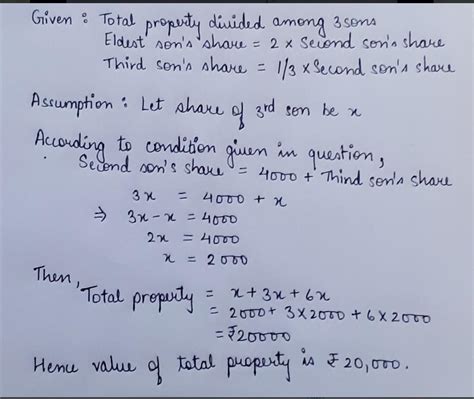 Given : Total property divided among 3 sons
Eldest son's share = 2 × Second son's share
Third son's share = 1/3 × Second son's share
Assumption : Let share of 3rd son be x
According to condition given in question,
Second son's share = 4000 + Third son's share
3x = 4000 + x
⇒ 3x - x = 4000
2x = 4000
x = 2000
Then,
Total property = x + 3x + 6x
= 2000 + 3×2000 + 6×2000
= ₹20000
Hence value of total property is ₹ 20,000.